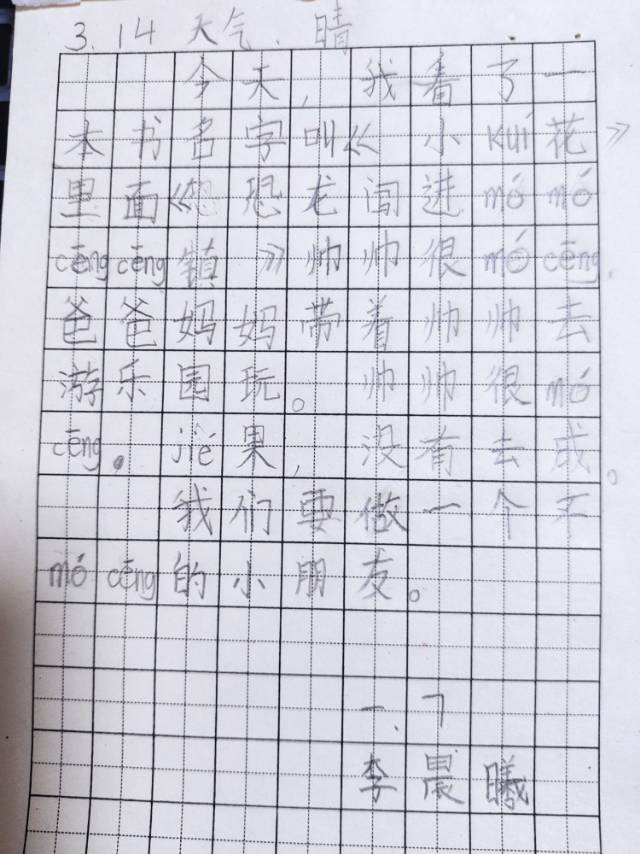 3.14 天气.晴
今天,我看了一
本书名字叫《小kuí花》
里面《恐龙闯进mó mó
cēng cēng镇》帅帅很mó cēng.
爸爸妈妈带着帅帅去
游乐园玩。帅帅很mó
cēng。jié果,没有去成。
我们要做一个不
mó cēng的小朋友。
一.7
李晨曦